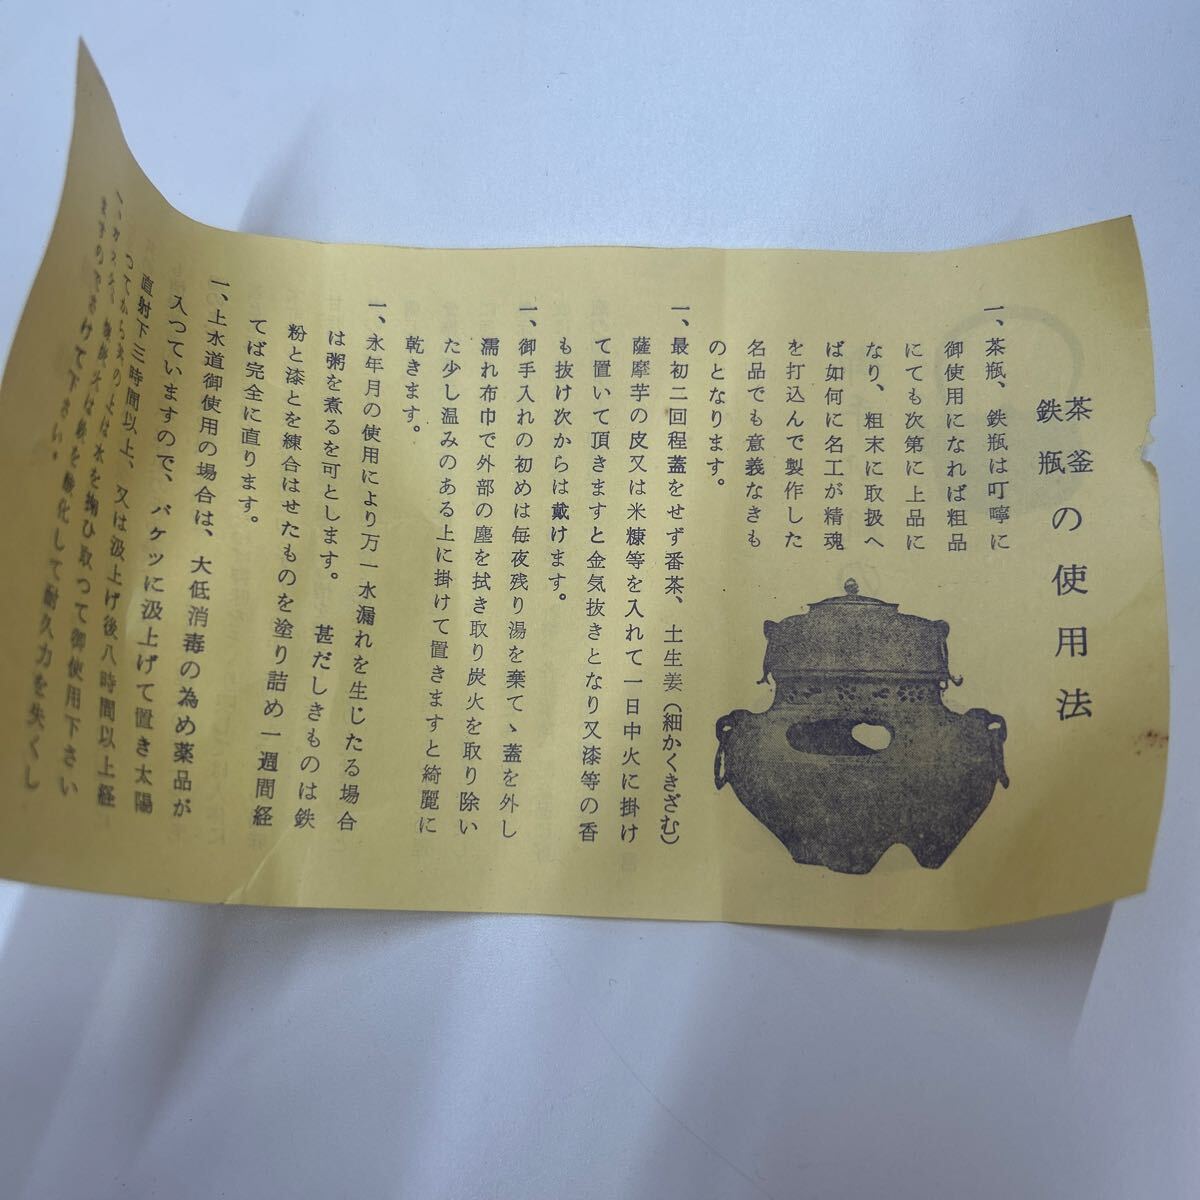 茶釜
鉄瓶
の使用法
一、茶瓶、鉄瓶は叮嚀に
御使用になれば粗品
にても次第に上品に
なり、粗末に取扱へ
ば如何に名工が精魂
を打込んで製作した
名品でも意義なきも
のとなります。
一、最初二回程蓋をせず番茶、土生姜(細かくきざむ)
薩摩芋の皮又は米糠等を入れて一日中火に掛け
て置いて頂きますと金気抜きとなり又漆等の香
も抜け次からは戴けます。
一、御手入れの初めは毎夜残り湯を棄てゝ蓋を外し
濡れ布巾で外部の塵を拭き取り炭火を取り除い
た少し温みのある上に掛けて置きますと綺麗に
乾きます。
一、永年月の使用により万一水漏れを生じたる場合
は粥を煮るを可とします。甚だしきものは鉄
粉と漆とを練合はせたものを塗り詰め一週間経
てば完全に直ります。
一、上水道御使用の場合は、大低消毒の為め薬品が
入つていますので、バケツに汲上げて置き太陽
直射下三時間以上、又は汲上げ後八時間以上経
つてから其の上は水を掬ひ取つて御使用下さい
は鉄を酸化して耐久力を失くし
ますのでさけて下さい。